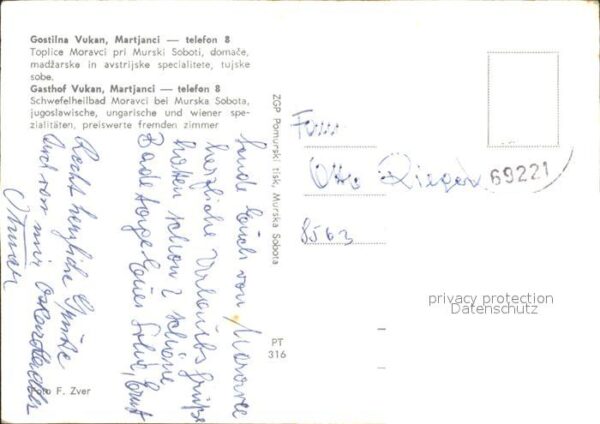 Gostilna Vukan, Martjanci — telefon 8
Toplice Moravci pri Murski Soboti, domače,
madžarske in avstrijske specialitete, tujske
sobe.
Gasthof Vukan, Martjanci — telefon 8
Schwefelheilbad Moravci bei Murska Sobota,
jugoslawische, ungarische und wiener spe-
zialitäten, preiswerte fremden zimmer
ZGP Pomurski tisk, Murska Sobota
PT
316
Foto F. Zver
sende Euch von Moravce
herzliche Urlaubsgrüße
hatten schon 2 schöne
Badetage Euer Sohn, Ernst
Recht herzliche Grüße
auch von mir
Otto Rieger
69221
8563
privacy protection
Datenschutz